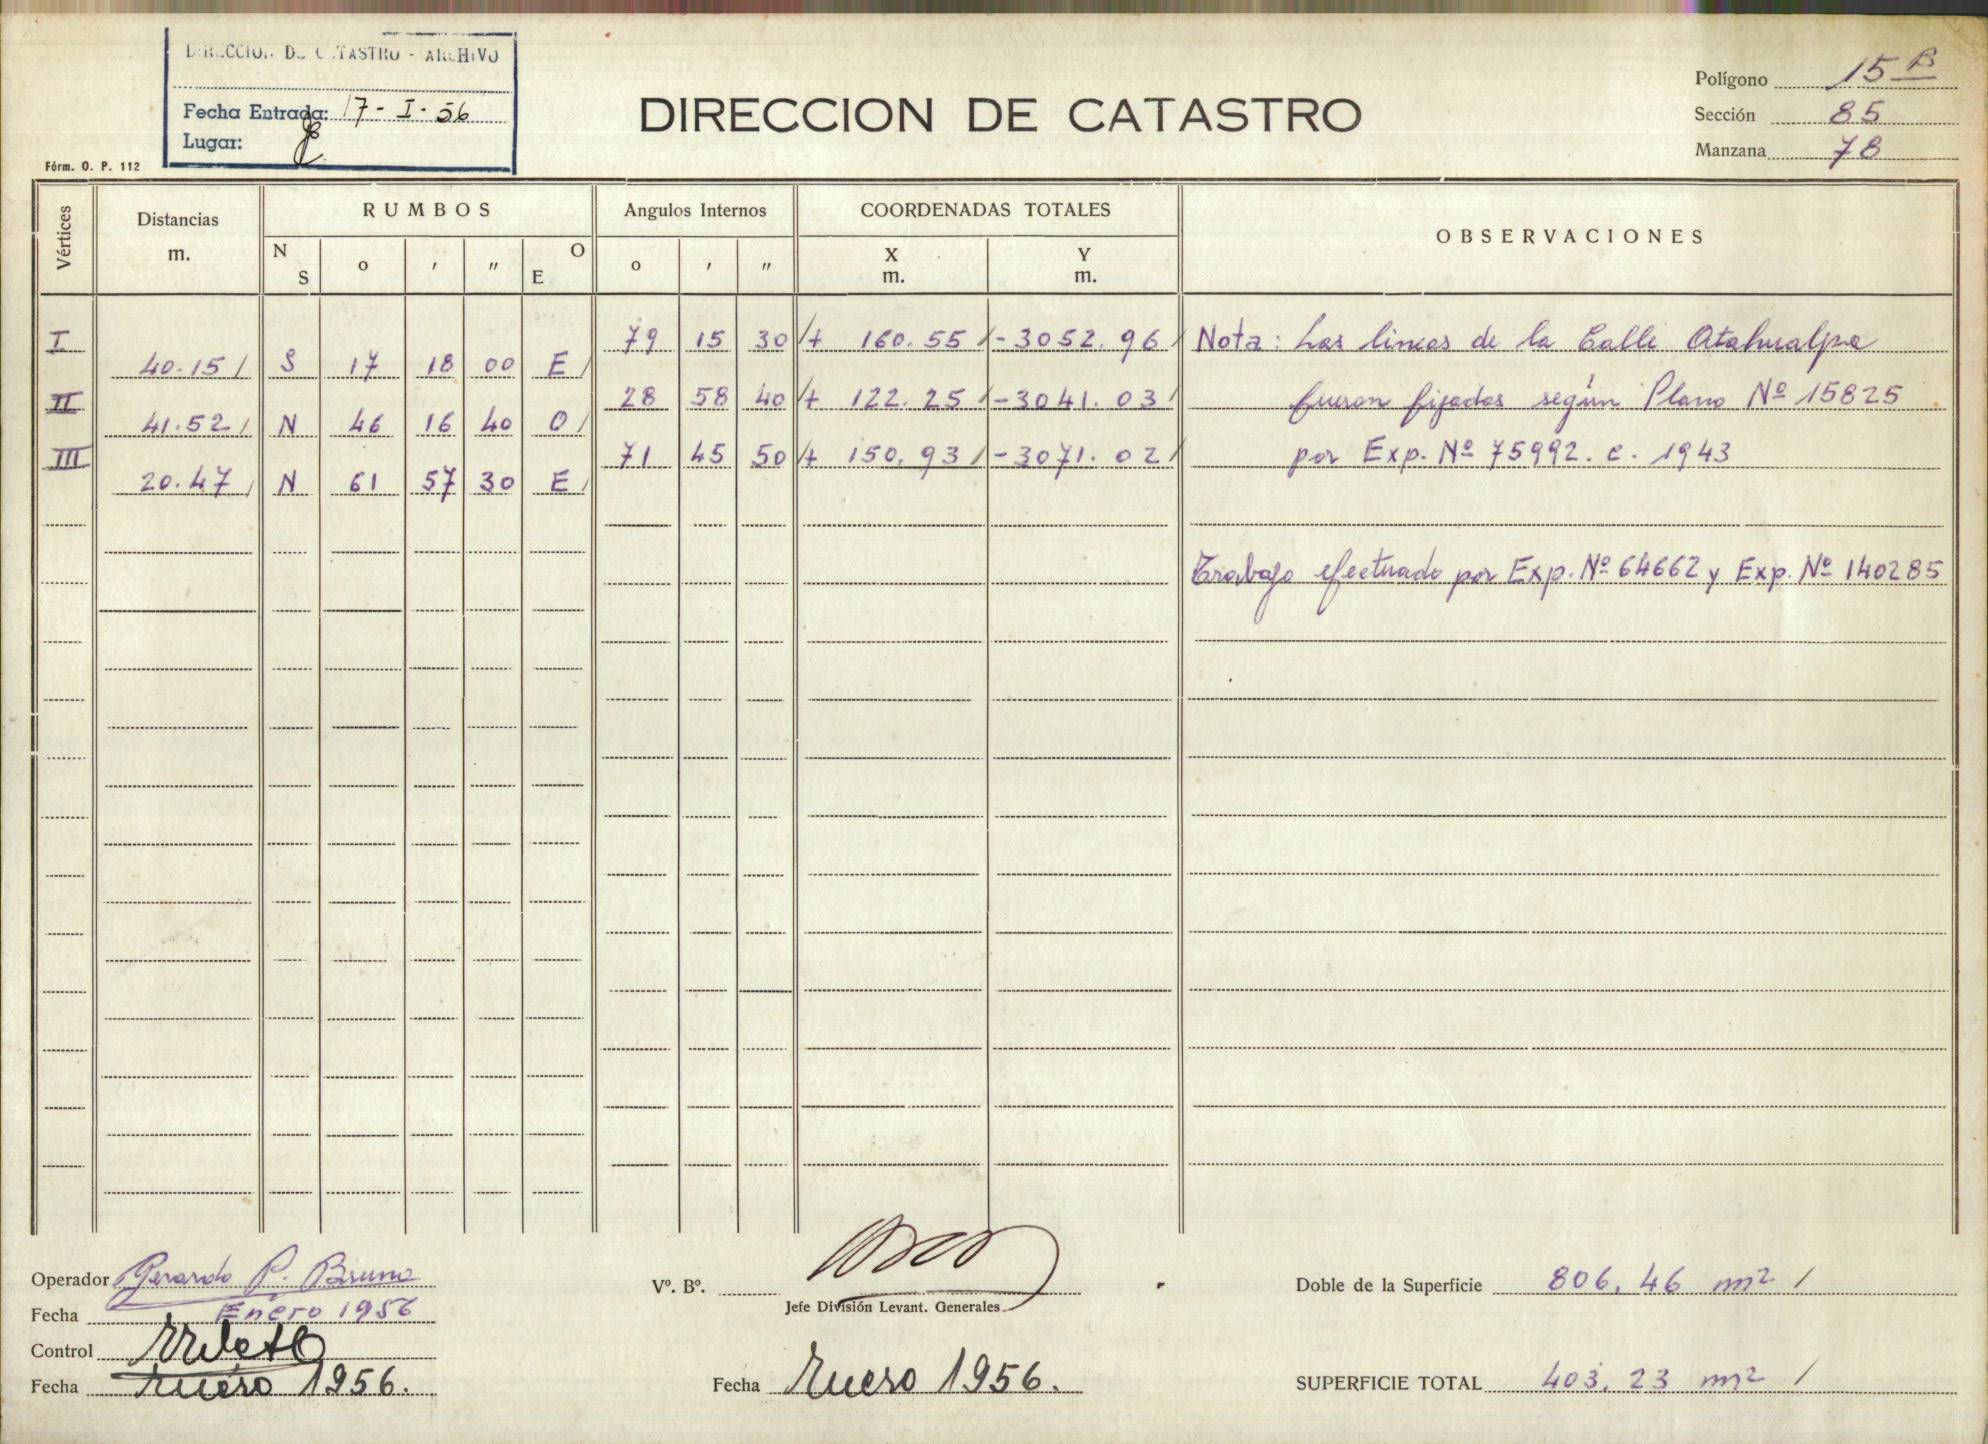 DIRECCION DE CATASTRO - ARCHIVO
Fecha Entrada: 17-I-56
Lugar:
Fórm. O. P. 112
DIRECCION DE CATASTRO
Polígono 15 B
Sección 85
Manzana 78
Vértices Distancias m. RUMBOS N S o ' " O E Angulos Internos o ' " COORDENADAS TOTALES X m. Y m. OBSERVACIONES
I 79 15 30 + 160.55 - 3052.96 Nota: Las lineas de la Calle Atahualpa
40.15 S 17 18 00 E
II 28 58 40 + 122.25 - 3041.03 fueron fijadas según Plano Nº 15825
41.52 N 46 16 40 O
III 71 45 50 + 150.93 - 3071.02 por Exp. Nº 75992. c. 1943
20.47 N 61 57 30 E
Trabajo efectuado por Exp. Nº 64662 y Exp. Nº 140285
Operador Gerardo P. Bruno
Fecha Enero 1956
Control
Fecha Enero 1956.
Vº. Bº.
Jefe División Levant. Generales
Fecha Enero 1956.
Doble de la Superficie 806.46 m2
SUPERFICIE TOTAL 403.23 m2